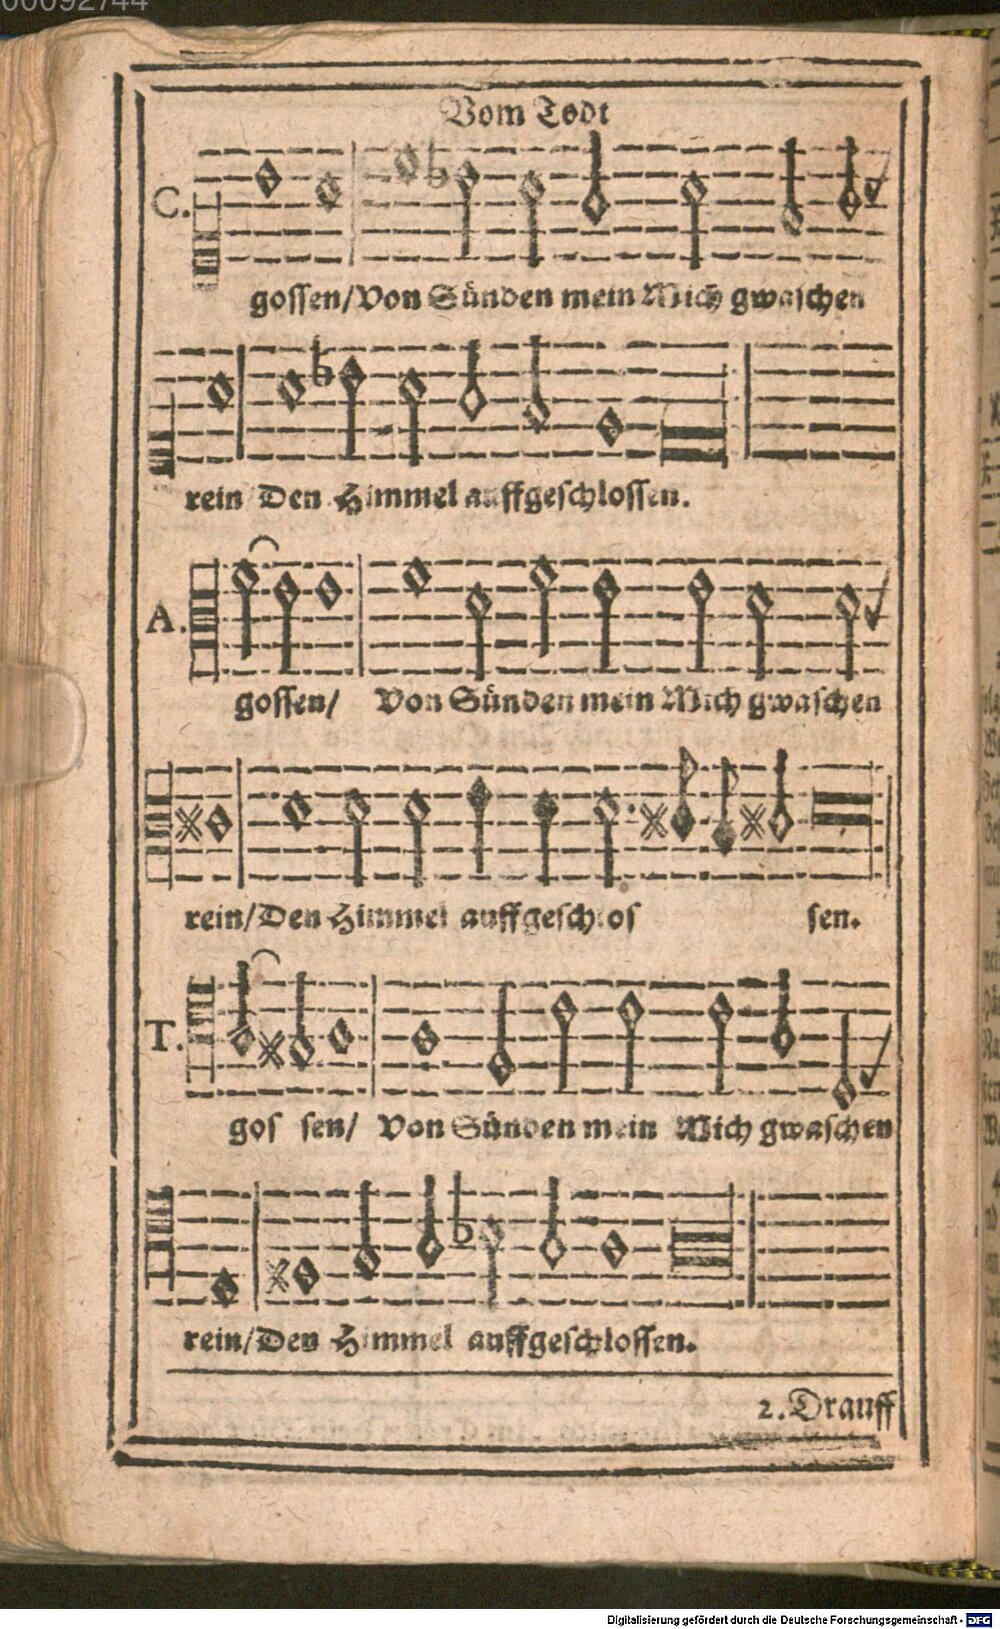 00092744
Vom Todt
C.
gossen/Von Sünden mein Mich gwaschen
rein Den Himmel auffgeschlossen.
A.
gossen/ Von Sünden mein Mich gwaschen
rein/Den Himmel auffgeschlos sen.
T.
gos sen/ Von Sünden mein Mich gwaschen
rein/Den Himmel auffgeschlossen.
2. Drauff
Digitalisierung gefördert durch die Deutsche Forschungsgemeinschaft - DFG